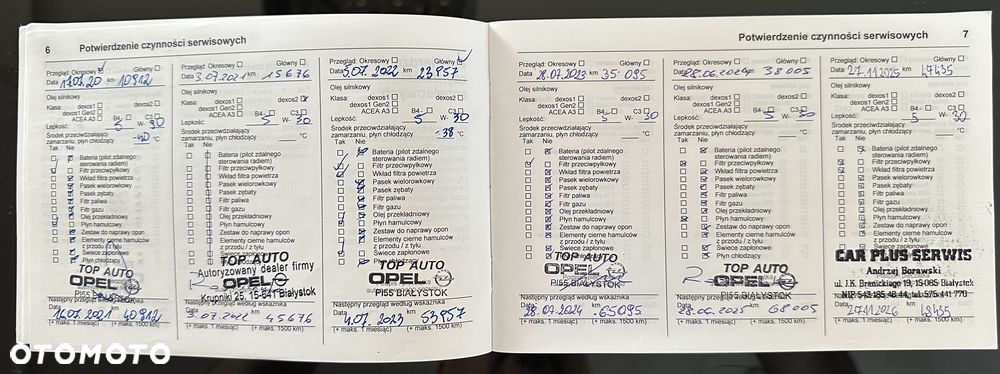 6 Potwierdzenie czynności serwisowych
Przegląd: Okresowy Główny
Data 17.07.20 km 10912
Olej silnikowy
Klasa: dexos1 dexos2
dexos1 Gen2
ACEA A3 B4 C3
Lepkość: 5 W- 30
Środek przeciwdziałający
zamarzaniu, płyn chłodzący -40 °C
Tak Nie
Bateria (pilot zdalnego
sterowania radiem)
Filtr przeciwpyłkowy
Wkład filtra powietrza
Pasek wielorowkowy
Pasek zębaty
Filtr paliwa
Filtr gazu
Olej przekładniowy
Płyn hamulcowy
Zestaw do naprawy opon
Elementy cierne hamulców
z przodu / z tyłu
Świece zapłonowe
Płyn chłodzący
TOP AUTO
OPEL
PI55 BIAŁYSTOK
Następny przegląd według wskazania
Data 16.07.2021 km 40912
(+ maks. 1 miesiąc) (+ maks. 1500 km)
Przegląd: Okresowy Główny
Data 3.07.2021 km 15676
Olej silnikowy
Klasa: dexos1 dexos2
dexos1 Gen2
ACEA A3 B4 C3
Lepkość: 5 W- 30
Środek przeciwdziałający
zamarzaniu, płyn chłodzący °C
Tak Nie
Bateria (pilot zdalnego
sterowania radiem)
Filtr przeciwpyłkowy
Wkład filtra powietrza
Pasek wielorowkowy
Pasek zębaty
Filtr paliwa
Filtr gazu
Olej przekładniowy
Płyn hamulcowy
Zestaw do naprawy opon
Elementy cierne hamulców
z przodu / z tyłu
Świece zapłonowe
TOP AUTO
Autoryzowany dealer firmy
OPEL
Krupniki 25, 15-641 Białystok
Następny przegląd według wskazania
Data 3.07.2022 km 45676
(+ maks. 1 miesiąc) (+ maks. 1500 km)
Przegląd: Okresowy Główny
Data 5.07.2022 km 23957
Olej silnikowy
Klasa: dexos1 dexos2
dexos1 Gen2
ACEA A3 B4 C3
Lepkość: 5 W- 30
Środek przeciwdziałający
zamarzaniu, płyn chłodzący -38 °C
Tak Nie
Bateria (pilot zdalnego
sterowania radiem)
Filtr przeciwpyłkowy
Wkład filtra powietrza
Pasek wielorowkowy
Pasek zębaty
Filtr paliwa
Filtr gazu
Olej przekładniowy
Płyn hamulcowy
Zestaw do naprawy opon
Elementy cierne hamulców
z przodu / z tyłu
Świece zapłonowe
Płyn chłodzący
TOP AUTO
OPEL
PI55 BIAŁYSTOK
Następny przegląd według wskazania
Data 4.07.2023 km 53957
(+ maks. 1 miesiąc) (+ maks. 1500 km)
Potwierdzenie czynności serwisowych 7
Przegląd: Okresowy Główny
Data 28.07.2023 km 35 095
Olej silnikowy
Klasa: dexos1 dexos2
dexos1 Gen2
ACEA A3 B4 C3
Lepkość: 5 W- 30
Środek przeciwdziałający
zamarzaniu, płyn chłodzący °C
Tak Nie
Bateria (pilot zdalnego
sterowania radiem)
Filtr przeciwpyłkowy
Wkład filtra powietrza
Pasek wielorowkowy
Pasek zębaty
Filtr paliwa
Filtr gazu
Olej przekładniowy
Płyn hamulcowy
Zestaw do naprawy opon
Elementy cierne hamulców
z przodu / z tyłu
Świece zapłonowe
TOP AUTO
OPEL
PI55 BIAŁYSTOK
Następny przegląd według wskazania
Data 28.07.2024 km 65095
(+ maks. 1 miesiąc) (+ maks. 1500 km)
Przegląd: Okresowy Główny
Data 28.06.2024 km 38005
Olej silnikowy
Klasa: dexos1 dexos2
dexos1 Gen2
ACEA A3 B4 C3
Lepkość: 5 W- 30
Środek przeciwdziałający
zamarzaniu, płyn chłodzący °C
Tak Nie
Bateria (pilot zdalnego
sterowania radiem)
Filtr przeciwpyłkowy
Wkład filtra powietrza
Pasek wielorowkowy
Pasek zębaty
Filtr paliwa
Filtr gazu
Olej przekładniowy
Płyn hamulcowy
Zestaw do naprawy opon
Elementy cierne hamulców
z przodu / z tyłu
Świece zapłonowe
TOP AUTO
OPEL
PI55 BIAŁYSTOK
Następny przegląd według wskazania
Data 28.06.2025 km 68005
(+ maks. 1 miesiąc) (+ maks. 1500 km)
Przegląd: Okresowy Główny
Data 27.11.2025 km 47435
Olej silnikowy
Klasa: dexos1 dexos2
dexos1 Gen2
ACEA A3 B4 C3
Lepkość: 5 W- 30
Środek przeciwdziałający
zamarzaniu, płyn chłodzący °C
Tak Nie
Bateria (pilot zdalnego
sterowania radiem)
Filtr przeciwpyłkowy
Wkład filtra powietrza
Pasek wielorowkowy
Pasek zębaty
Filtr paliwa
Filtr gazu
Olej przekładniowy
Płyn hamulcowy
Zestaw do naprawy opon
Elementy cierne hamulców
z przodu / z tyłu
Świece zapłonowe
CAR PLUS SERWIS
Andrzej Borawski
ul. J.K. Branickiego 19, 15-085 Białystok
NIP 543 185 48 44, tel. 575 441 770
Następny przegląd według wskazania
Data 27.11.2026 km
(+ maks. 1 miesiąc) (+ maks. 1500 km)
OTOMOTO